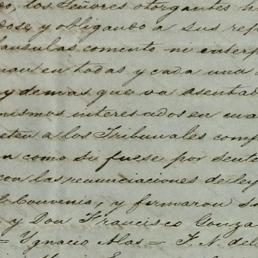 o, los Señores otorgantes h
dose y obligando a sus rep
lausulas comento ni enterp
uan en todas y cada una
y demas que va asentad
mismos interesados en cua
eten a los Tribunales comp
n como si fuese por sente
con las renunciaciones de ley
Convenia, y firmaron
y Don Francisco Gonza
= Ygnacio Alas = F. N. del